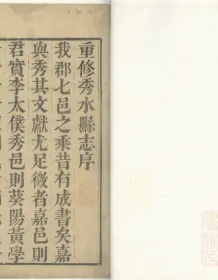 重修秀水縣志序
我郡七邑之乘昔有成書矣嘉
與秀其文獻尤足徵者嘉邑則
君實李太僕秀邑則葵陽黃學